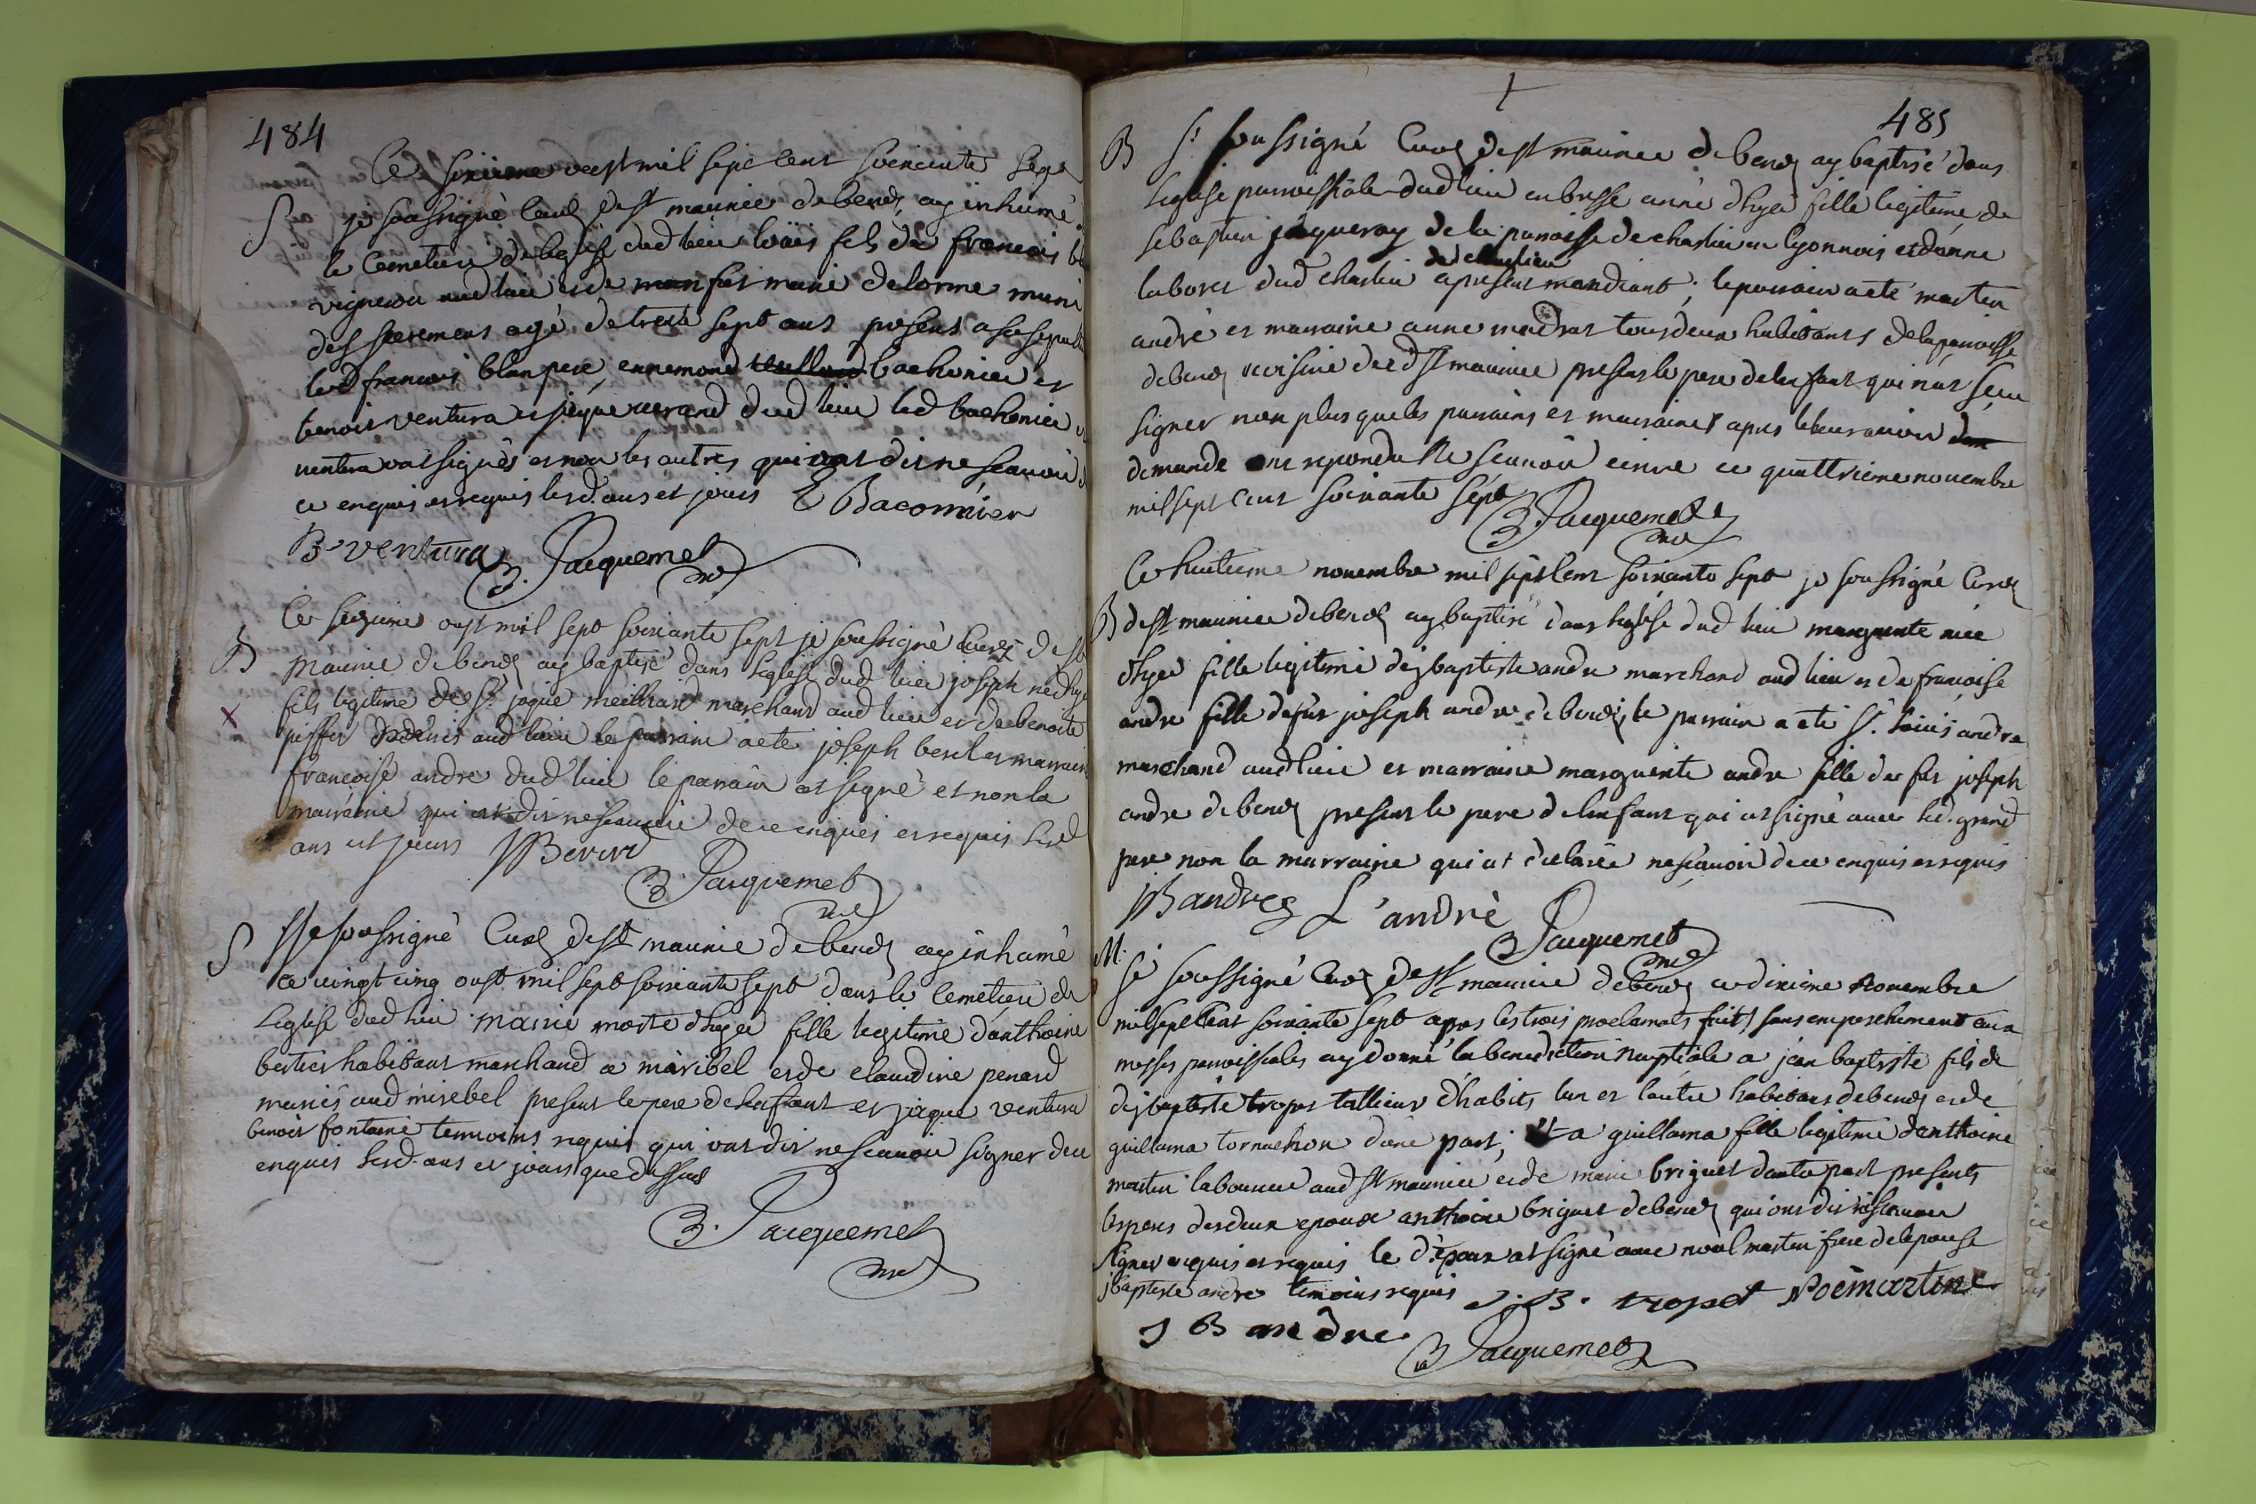 484
Ce sixieme oust mil sept cent soixcente sept
S je soussigné Curé de st maurice de benos ay inhumé
le Cemetiere de leglise dud lieu loüis fils de francois
vigneron aud lieu et de marie delorme muni
des sacremens agé de trente sept ans presens a sa
led francois blan pere, ennemond bachonier et
benoit ventura et jaque durand dud lieu led bachonier
ventura ont signés et non les autres qui ont dit ne scavoir
ce enquis et requis lesd. ans et jours E Baconnier
B. ventura B. Jacquemet curé
Ce seizieme oust mil sept soixante sept je soussigné Curé de st
B maurice de benos ay baptisé dans leglise dud lieu joseph né dhyer
X fils legitime de Sr. jaque meilhard marchand aud lieu et de benoite
aud lieu le parrain a eté joseph berd et marraine
francoise andre dud lieu le parrain at signé et non la
marraine qui at dit ne scavoir de ce enquis et requis lesd
ans et jours
B. Jacquemet curé
S Je soussigné Curé de st maurice de benos ay inhumé
ce vingt cinq oust mil sept soixante sept dans le Cemetiere de
Leglise dud lieu marie morte dhyer fille legitime danthoine
bertier habitant marchand a miribel et de claudine penard
mariés aud mirebel present le pere de lenfant et jaque ventura
benoit fontaine temoins requis qui ont dit ne scavoir signer de ce
enquis lesd. ans et jours que dessus
B. Jacquemet
curé
485
B Je soussigné Curé de st maurice de benos ay baptisé dans
leglise parroissiale dud lieu en bresse anne dhyer fille legitime de
sebastien jaqueray de la paroisse de charlieu en lyonnois et danne
laboret dud charlieu de charlieu apresent mandiant; le parrain a eté martin
andré et marraine anne tous deux habitants de la paroisse
de benos voisine dud st maurice present le pere de lenfant qui nat sceu
signer non plus que les parrains et marraines apres leur avoir
demandé ont repondu ne scavoir ecrire ce quattrieme novembre
mil sept cent soixante sept
B. Jacquemet
curé
Ce huitieme novembre mil sept cent soixante sept je soussigné Curé
B de st maurice de benos ay baptisé dans leglise dud lieu marguerite née
dhyer fille legitime de jbaptiste andre marchand aud lieu et de francoise
andre fille de fut joseph andre de benos, le parrain a eté Sr. loüis andre
marchand aud lieu et marraine marguerite andre fille de fut joseph
andre de benos present le pere de lenfant qui at signé avec led. grand
pere non la marraine qui at declarée ne scavoir de ce enquis et requis
JB andre L'andrè B Jacquemet
curé
M. Je soussigné Curé de st maurice de benos ce dixieme Novembre
mil sept Cent soixante sept apres les trois proclamats faits sans empeschement aux
messes parroissiales ay donné la benediction Nuptiale a jean baptiste fils de
de jbaptiste tropet tallieur dhabits lun et lautre habitans de benos et de
guillama tornachon dune part; et a guillama fille legitime danthoine
martin laboureur aud St maurice et de marie briguet dautre part presents
les peres des deux epoux anthoine briguet de benos qui ont dit ne scavoir
signer enquis et requis le d. epoux at signé avec noël martin frere de lepouse
jbaptiste andre temoins requis J. B. tropet Noë martin
J B andre B Jacquemet